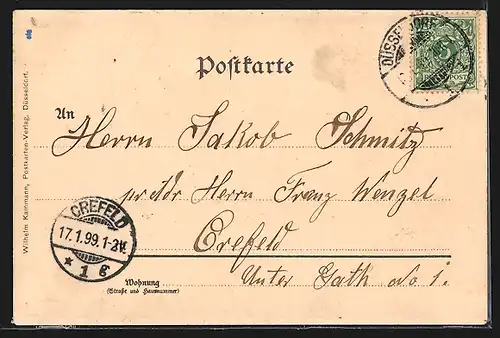 DÜSSELDORF
5
REICHSPOST
Postkarte
An
Herrn Jakob Schmitz
per Adr Herrn Franz Wenzel
Crefeld
Unter Gath No 1.
CREFELD
17.1.99.1-2N.
* 1 e
Wohnung
(Straße und Hausnummer)
Wilhelm Kammann, Postkarten-Verlag, Düsseldorf.